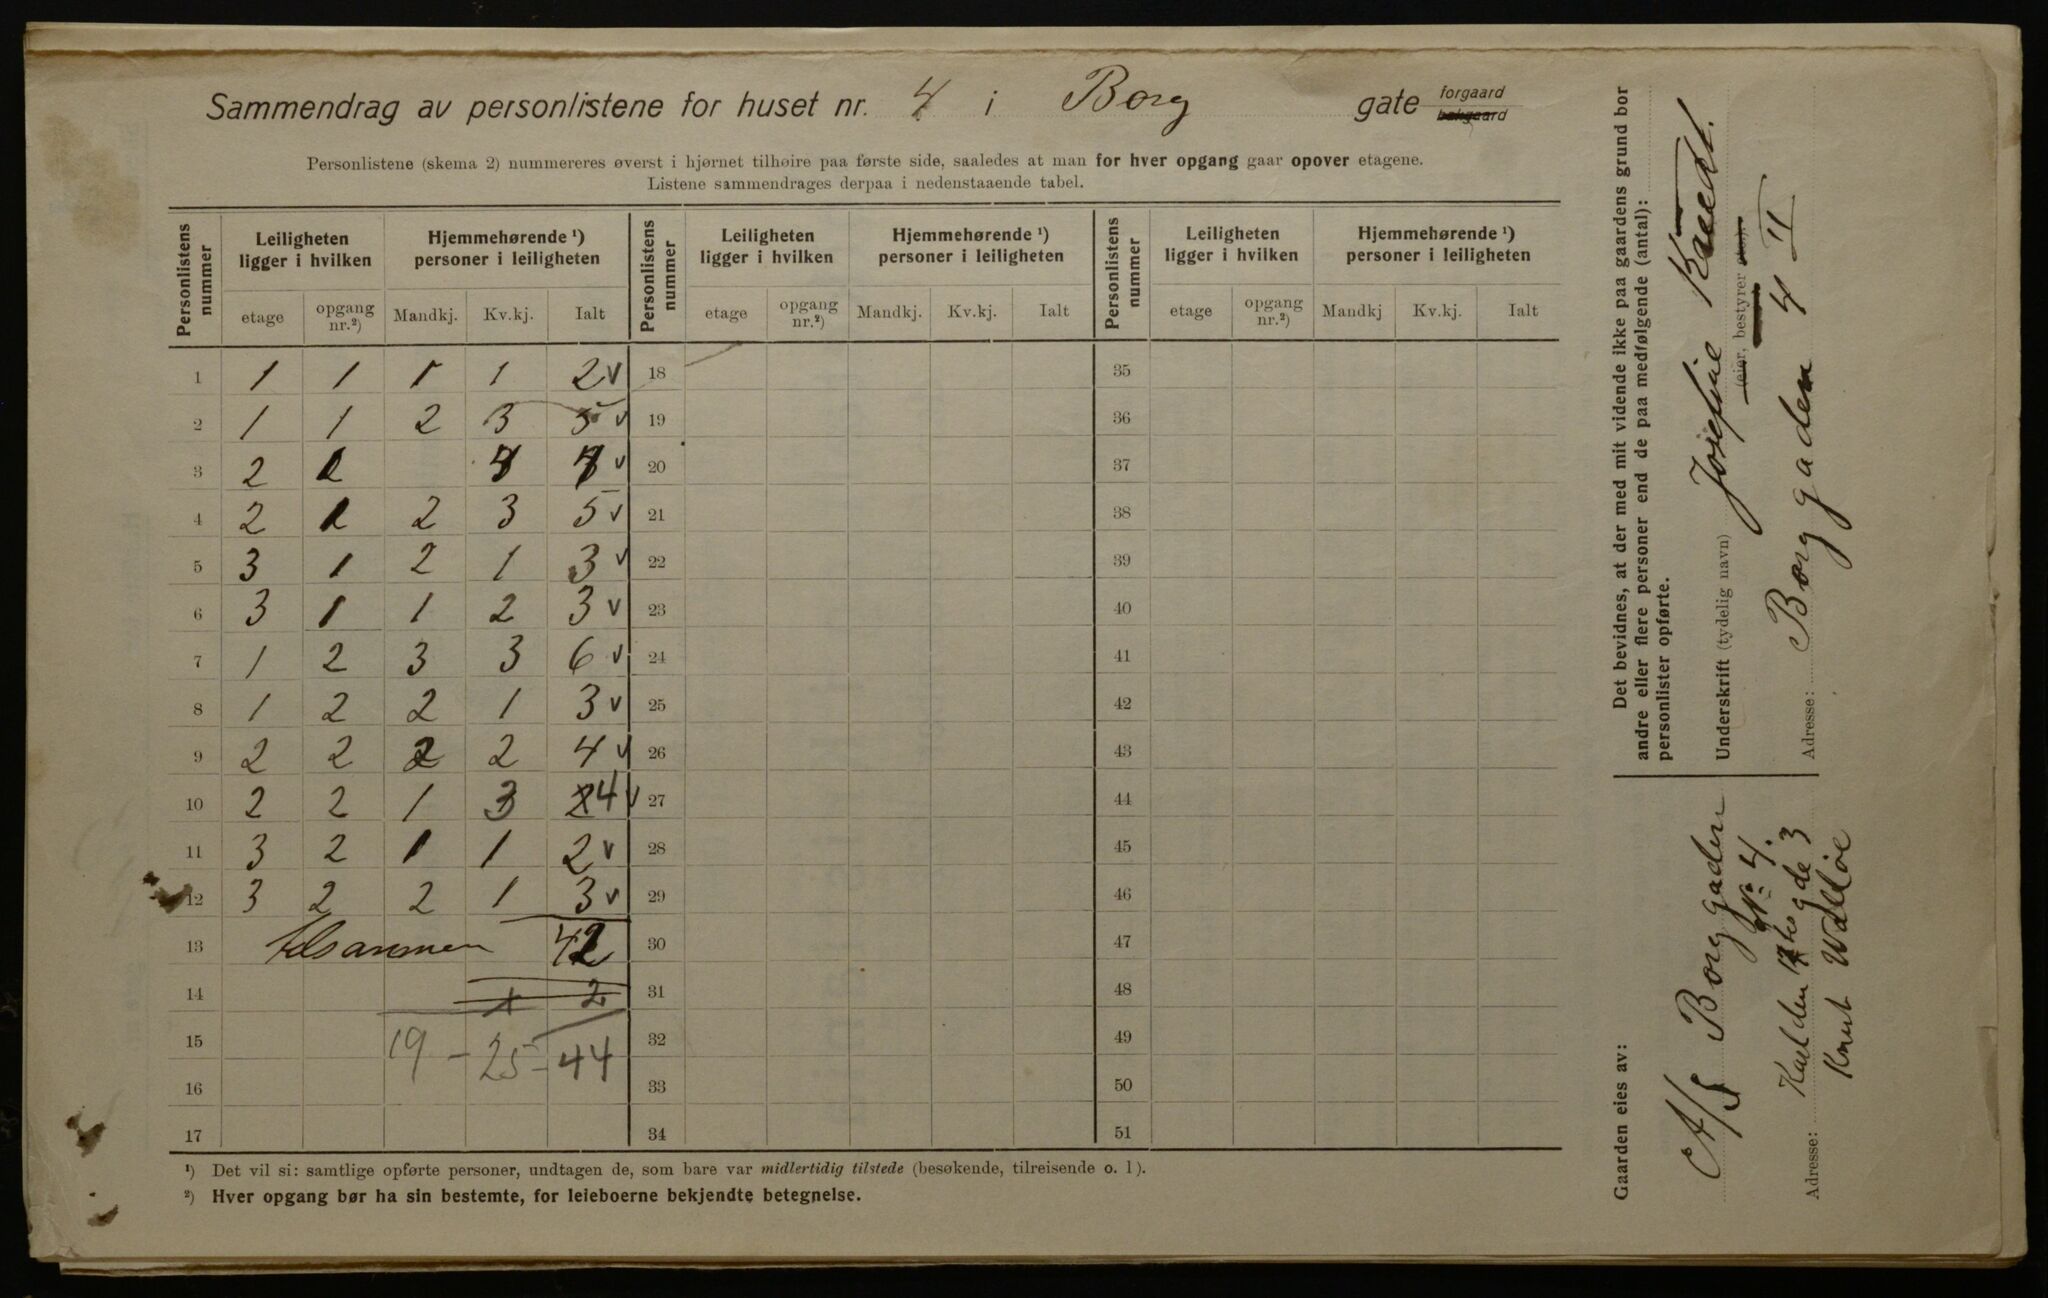 Sammendrag av personlistene for huset nr. 4 i Borg gate forgaard bakgaard
Personlistene (skema 2) nummereres øverst i hjørnet tilhøire paa første side, saaledes at man for hver opgang gaar opover etagene.
Listene sammendrages derpaa i nedenstaaende tabel.
Personlistens nummer Leiligheten ligger i hvilken Hjemmehørende ¹) personer i leiligheten Personlistens nummer Leiligheten ligger i hvilken Hjemmehørende ¹) personer i leiligheten Personlistens nummer Leiligheten ligger i hvilken Hjemmehørende ¹) personer i leiligheten
etage opgang nr.²) Mandkj. Kv.kj. Ialt etage opgang nr.²) Mandkj. Kv.kj. Ialt etage opgang nr.²) Mandkj Kv.kj. Ialt
1 1 1 1 1 2 v 18 35
2 1 1 2 3 5 v 19 36
3 2 1 v 20 37
4 2 1 2 3 5 v 21 38
5 3 1 2 1 3 v 22 39
6 3 1 1 2 3 v 23 40
7 1 2 3 3 6 v 24 41
8 1 2 2 1 3 v 25 42
9 2 2 2 2 4 v 26 43
10 2 2 1 3 4 v 27 44
11 3 2 1 1 2 v 28 45
12 3 2 2 1 3 v 29 46
13 tilsammen 42 30 47
14 2 31 48
15 19 - 25 - 44 32 49
16 33 50
17 34 51
¹) Det vil si: samtlige opførte personer, undtagen de, som bare var midlertidig tilstede (besøkende, tilreisende o. l).
²) Hver opgang bør ha sin bestemte, for leieboerne bekjendte betegnelse.
Det bevidnes, at der med mit vidende ikke paa gaardens grund bor
andre eller flere personer end de paa medfølgende (antal):
personlister opførte.
Underskrift (tydelig navn) Josefine
(eier, bestyrer etc).
Adresse: Borggaden 4 II
Gaarden eies av:
A/S Borggaden
No 4.
Adresse: gde 3
Knut